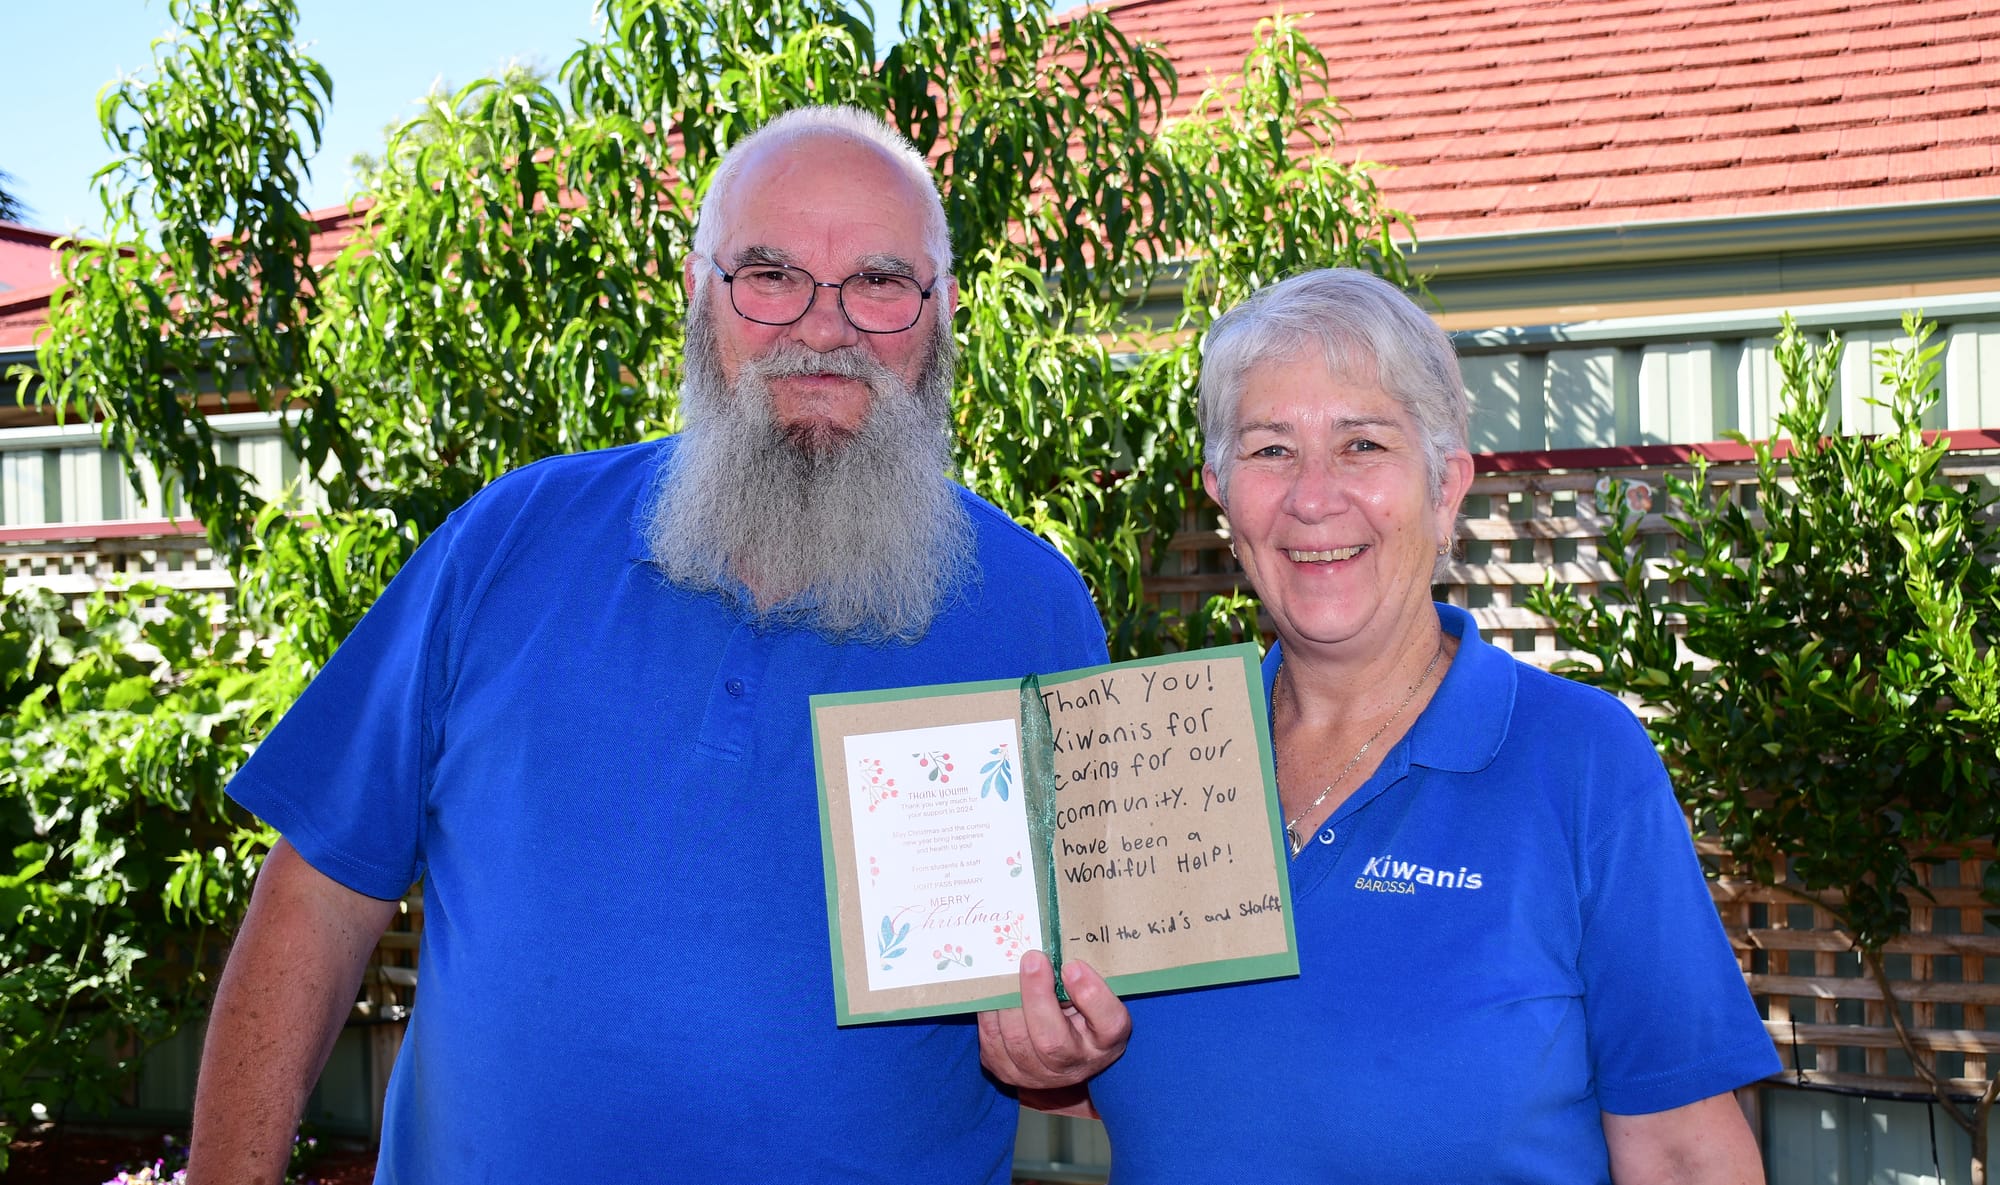 THANK YOU!!!!!
Thank you very much for
your support in 2024.
May Christmas and the coming
new year bring happiness
and health to you!
From students & staff
at
LIGHT PASS PRIMARY
MERRY
Christmas
Thank You!
Kiwanis for
caring for our
community. You
have been a
Wondiful Help!
- all the Kid's and Staff
Kiwanis
BAROSSA